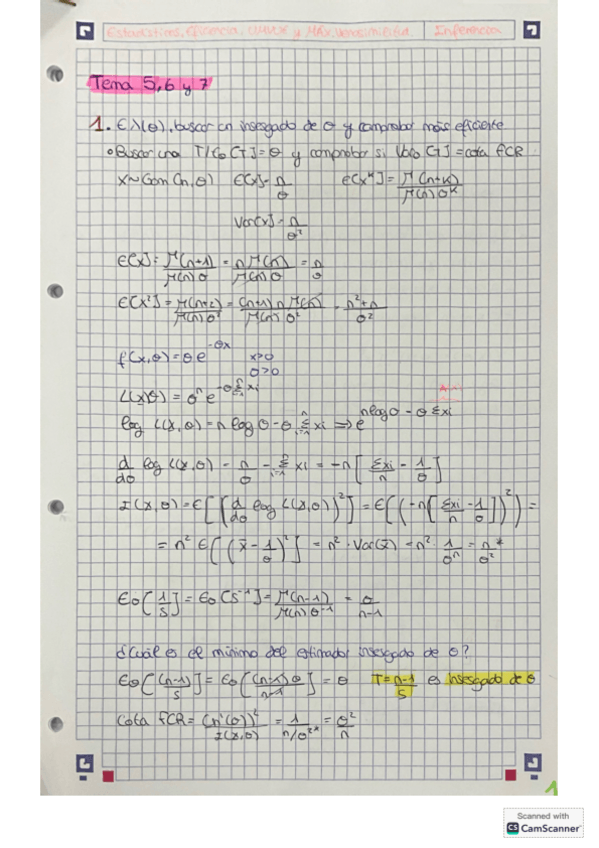 Estadísticos, eficiencia, UMVUE y Máx. Verosimilitud. Inferencia
Tema 5, 6 y 7
1. ξλ(θ). buscar un insesgado de θ y comprobar más eficiente
• Buscar una T/Eθ[T]=θ y comprobar si Varθ[T]=cota FCR
X~Gam(n,θ) E[X]=n/θ E[X^k]=Γ(n+k)/Γ(n)θ^k
Var[X]=n/θ²
E[X]=Γ(n+1)/Γ(n)θ = nΓ(n)/Γ(n)θ = n/θ
E[X²]=Γ(n+2)/Γ(n)θ² = (n+1)nΓ(n)/Γ(n)θ² = n²+n/θ²
f(x,θ)=θe^-θx x>0
θ>0
L(x,θ)=θ^n e^-θΣxi
log L(x,θ)=n log θ-θ Σxi ⇒ e^nlogθ-θΣxi
d/dθ log L(x,θ)=n/θ-Σxi=-n[Σxi/n-1/θ]
I(x,θ)=E[(d/dθ log L(x,θ))²]=E[(-n[Σxi/n-1/θ])²]=
=n²E[(x̄-1/θ)²]=n²·Var(x̄)=n²·1/θ^n=n/θ²*
Eθ[1/S]=Eθ[S^-1]=Γ(n-1)/Γ(n)θ^-1=θ/n-1
¿Cuál es el mínimo del estimador insesgado de θ?
Eθ[(n-1)/S]=Eθ[(n-1)θ/n-1]=θ T=n-1/S es insesgado de θ
Cota FCR=(h'(θ))²/I(x,θ)=1/n/θ²*=θ²/n
1
Scanned with
CS CamScanner